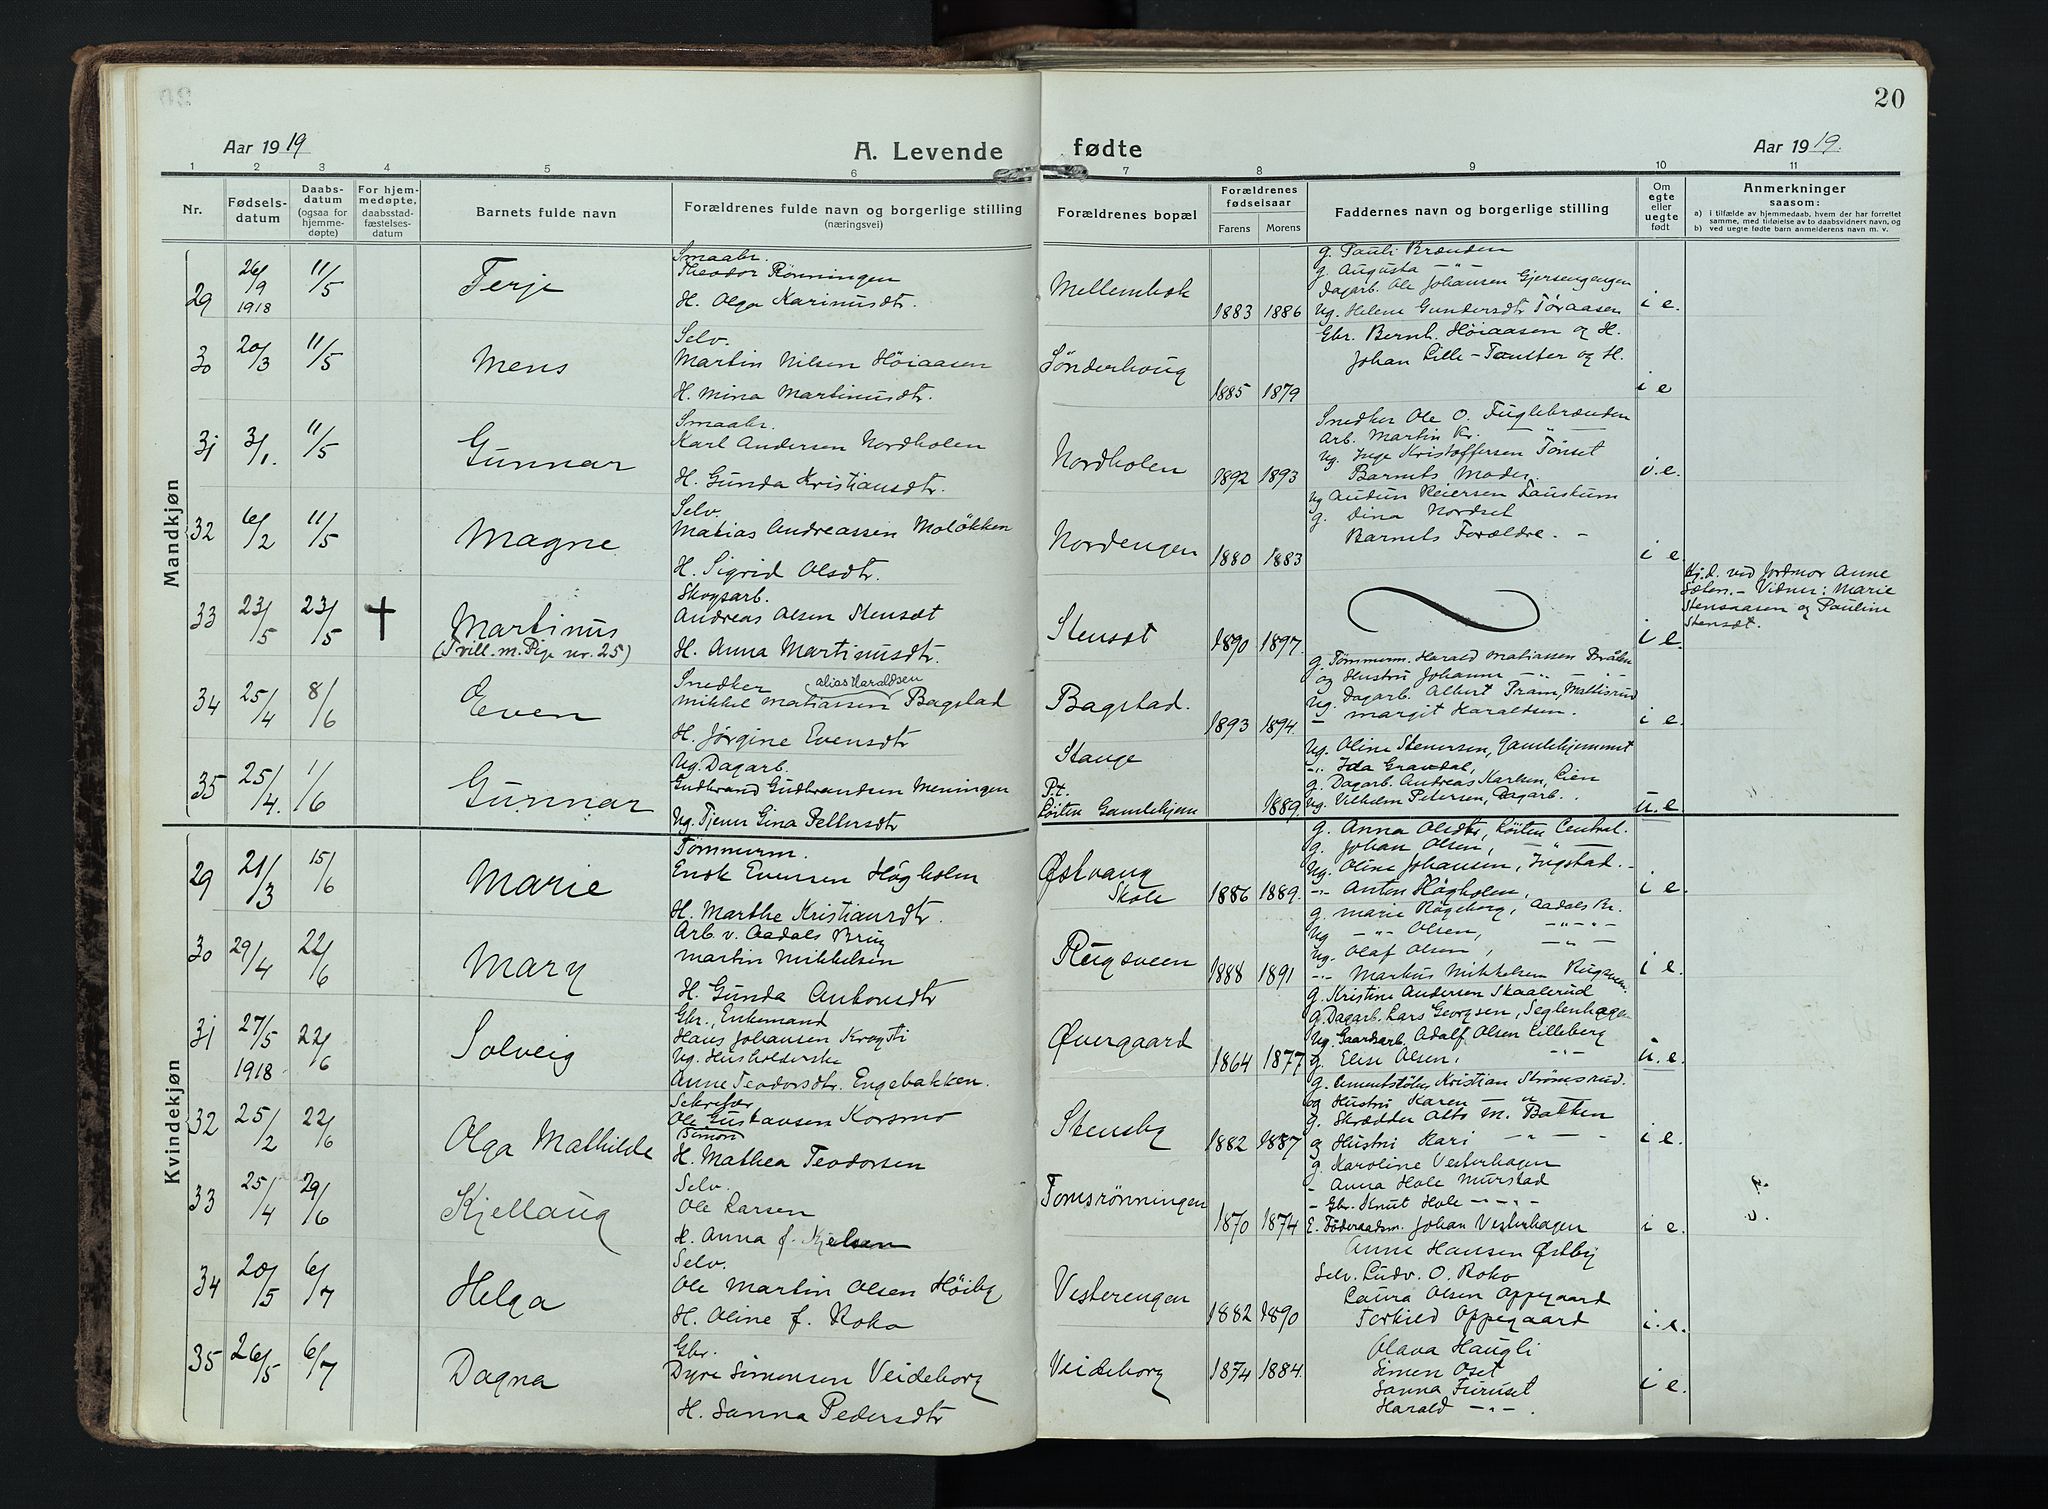 20
Aar 1919
A. Levende fødte
Aar 1919.
1 2 3 4 5 6 7 8 9 10 11
Nr.
Fødselsdatum
Daabsdatum (ogsaa for hjemmedøpte)
For hjemmedøpte, daabsstadfæstelsesdatum
Barnets fulde navn
Forældrenes fulde navn og borgerlige stilling (næringsvei)
Forældrenes bopæl
Forældrenes fødselsaar
Farens Morens
Faddernes navn og borgerlige stilling
Om egte eller uegte født
Anmerkninger saasom:
a) i tilfælde av hjemmedaab, hvem der har forrettet samme, med tilføielse av to daabsvidners navn, og
b) ved uegte fødte barn anmelderens navn m. v.
Mandkjøn
29 26/9 1918 11/5 Terje
Smaabr.
Theodor Rønningen
H. Olga Karinusdtr.
Mellembek 1883 1886
g. Pauli Brænden
g. Augusta -"-
Dagarb. Ole Johansen Gjersengengen
Ug. Helene Gundersdtr Toraasen
i e.
30 20/3 11/5 Mens
Selv.
Martin Nilsen Høiaasen
H. Mina Martinusdtr.
Sønderhoug 1885 1879
Gbr. Bernh. Høiaasen og H.
Johan Lille-Tønset og H.
i e
31 3/1. 11/5 Gunnar
Smaabr.
Karl Andersen Nordholen
H. Gunda Kristiansdtr.
Nordholen 1892 1893
Snedker Ole O. Fuglebrænden
Arb. Martin Kr. -"-
Ug. Inge Kristoffersen Tønset
Barnets Moder.
i. e.
32 6/2 11/5 Magne
Selv.
Matias Andreassen Moløkken
H. Sigrid Olsdtr.
Nordengen 1880 1883
Ug Audun Reiersen Fauskum
g. Dina Nordset
Barnets Forældre. -
i e.
33 23/5 23/5 † Martinus
(Tvill. m. Pige nr. 25)
Skogsarb.
Andreas Olsen Stensæt
H. Anna Martinusdtr.
Stensæt 1890 1897.
i e.
Hj.d. ved Jordmor Anne
Sæten. - Vidner: Marie
Stensaasen og Pauline
Stensæt.
34 25/4 8/6 Even
Snedker alias Haraldsen
Mikkel Matiassen Bagstad
H. Jørgine Evensdtr
Bagstad. 1893 1894.
g. Tømmerm. Harald Matiassen Bråten
og Hustru Johanne -"-
Ug. Dagarb. Albert Fram, Mattisrud
- Margit Haraldsen.
i e.
35 25/4. 1/6 Gunnar
Ug. Dagarb.
Gudbrand Gudbrandsen Meningen
Ug. Tjener Gina Pettersdtr
Stange
P.t.
Løiten Gamlehjem 1889.
Ug. Oline Stenersen, Gamlehjemmet
-". Ida Gravdal,
g. Dagarb. Andreas Karlsen, Lien
Ug. Vilhelm Petersen, Dagarb. .
u. e.
Kvindekjøn
29 21/3 15/6 Marie
Tømmerm.
Enok Evensen Høgholm
H. Marthe Kristiansdtr.
Østvang
Skole 1886 1889.
g. Anna Olsdtr, Løiten Central.
g. Johan Olsen, -"-
Ug. Oline Johansen, Ingstad. -
-"- Anton Høgholen,
i e.
30 29/4 22/6 Mary
Arb. v. Aadals Brug
Martin Mikkelsen
H. Gunda Antonsdtr
Rugsveen 1888 1891
g. Marie Røgeberg, Aadals Br.
Ug -"- Olsen, -"-"-
Ug. Olaf Olsen, -"-
-"- Markus Mikkelsen Rugsveen.
i e.
31 27/5 1918 22/6 Solveig
Gbr., Enkemand
Hans Johansen Krogsti
Ug. Husholderske
Anne Teodorsdtr. Engebakken.
Øvergaard 1864 1877
g. Kristine Andersen Skaalerud
g. Dagarb. Lars Georgsen, Seglenhagen
Ug. Gaardsarb. Adolf Olsen Lilleberg
g. Elise Olsen, -"-
u. e.
32 25/2 22/6 Olga Mathilde
Ole Gustavsen Korsmo
Simon
H. Mathea Teodorsen
Stensby 1882 1887
g. Cementstøber Kristian Strømsrud.
og Hustru Karen -"-
g. Skrædder Otto M. Bakken
og Hustru Kari -"-
i e.
33 25/4 29/6 Kjellaug
Selv.
Ole Larsen
H. Anna f. Kjelsen
Tomsrønningen 1870 1874
g. Karoline Vesterhagen
- Anna Hole Murstad
- Gbr. Knut Hole -"-"-
E. Føderaadsm. Johan Vesterhagen
i e.
34 20/5 6/7 Helga
Selv.
Ole Martin Olsen Høiby
H. Oline f. Roko
Vesterengen 1882 1890
Anne Hansen Østby
Selv. Ludv. O. Roko
Laura Olsen Oppegaard
Torkild Oppegaard
i. e.
35 26/5 6/7 Dagna
Gbr.
Dyre Simensen Veideborg
H. Sanna Pedersdtr
Veideborg 1874 1884.
Olava Haugli
Simen Oset
Sanna Furuset
Harald -"- .
i e.